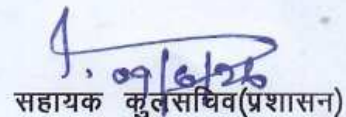 09/6/26
सहायक कुलसचिव(प्रशासन)